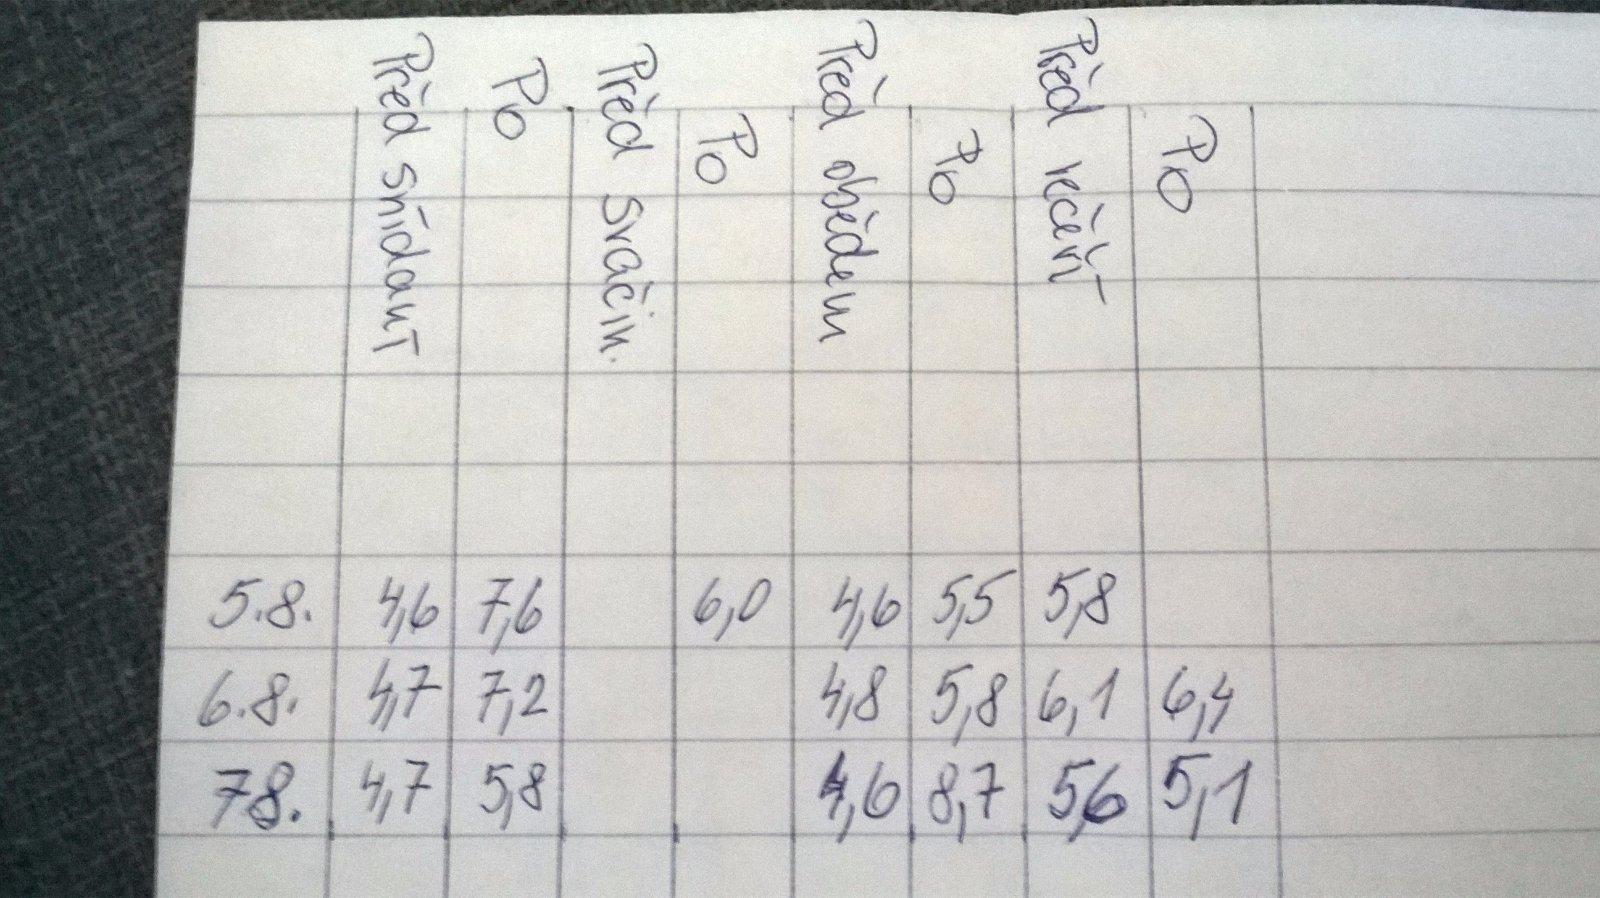 Před snídaní
Po
Před svačin.
Po
Před obědem
Po
Před večeří
Po
5.8. 4,6 7,6 6,0 4,6 5,5 5,8
6.8. 4,7 7,2 4,8 5,8 6,1 6,4
7.8. 4,7 5,8 4,6 8,7 5,6 5,1